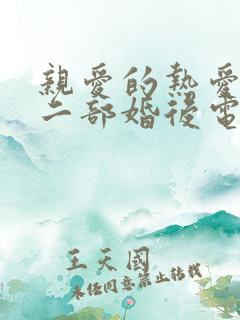 親愛的熱愛
二部婚後電
王天國
未经同意禁止转载